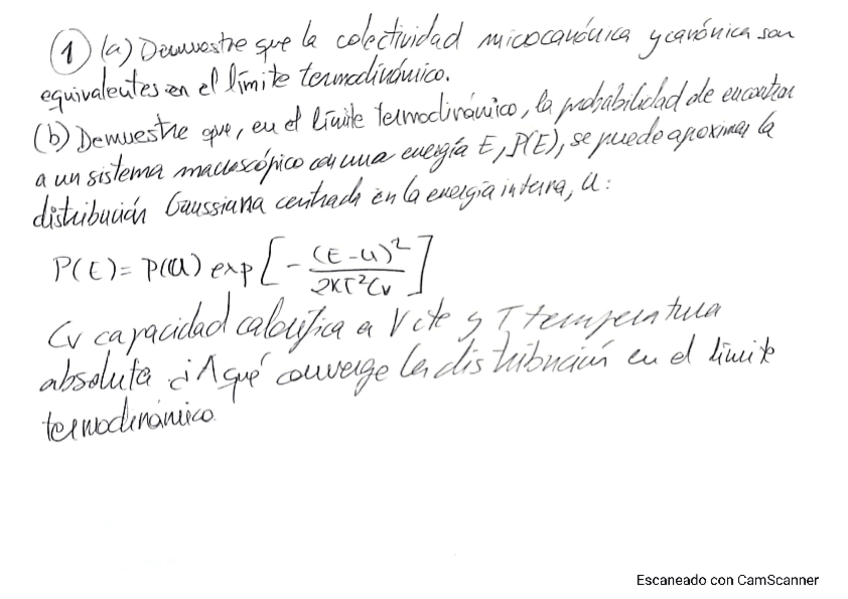 1 (a) Demuestre que la colectividad micocanónica y canónica son
equivalentes en el límite termodinámico.
(b) Demuestre que, en el límite termodinámico, la probabilidad de encontrar
a un sistema macroscópico con una energía E, P(E), se puede aproximar la
distribución Gaussiana centrada en la energía interna, U:
P(E) = P(U) exp[-(E-U)²/2KT²Cv]
Cv capacidad calorífica a V cte y T temperatura
absoluta ¿A qué converge la distribución en el límite
termodinámico.
Escaneado con CamScanner